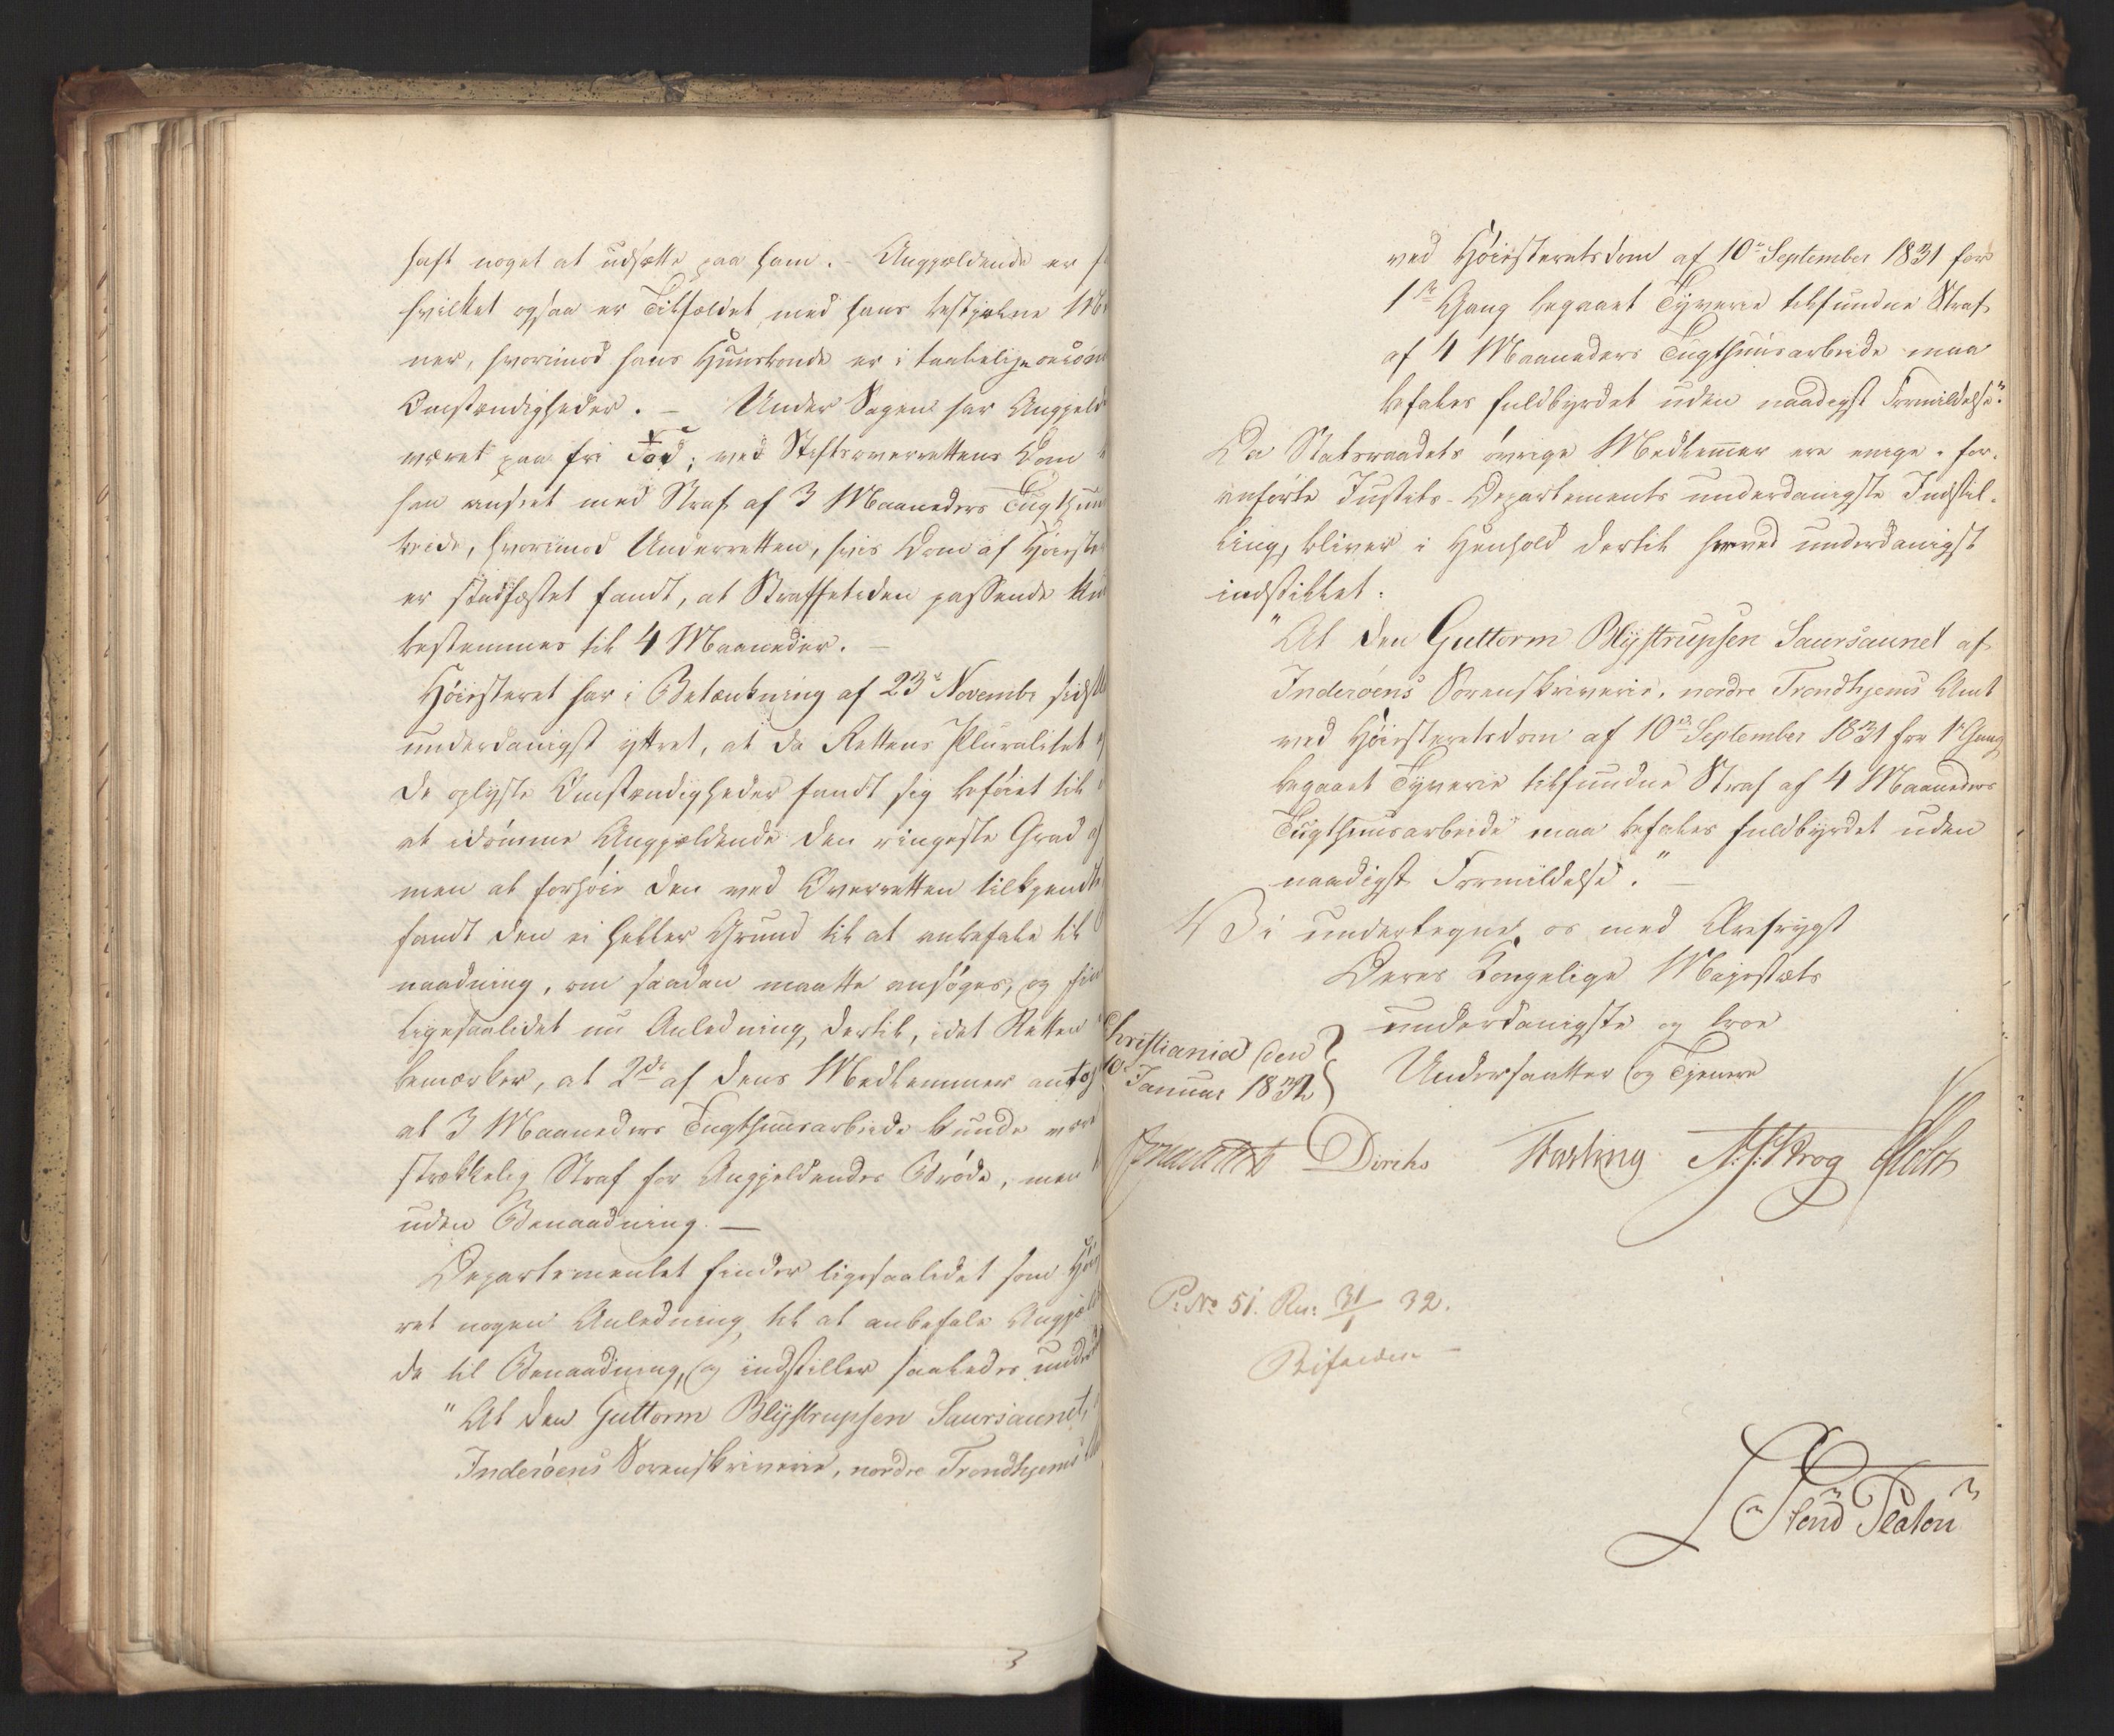 haft noget at udsætte paa ham. - Angjældende er
hvilket ogsaa er Tilfældet med hans bestjaalne
ner, hvorimod hans Huusbonde er i taalelige oecono
Omstændigheder. - Under Sagen har Angjeld
været paa fri Fod; ved Stiftsoverrettens Dom
han anseet med Straf af 3 Maaneders Tugthuus
beide, hvorimod Underretten, hvis Dom af Høieste
er stadfæstet fandt, at Straffetiden passende
bestemmes til 4 Maaneder. -
Høiesteret har i Betænkning af 23de Novembr sidst
underdanigst yttret, at da Rettens Pluralitet
de oplyste Omstændigheder fandt sig beføiet til
at idømme Angjældende den ringeste Grad af
men at forhøie den ved Overretten tilkjendte
fandt den ei heller Grund til at anbefale til
naadning, om saadan maatte ansøges, og
ligesaalidet nu Anledning dertil, idet Retten
bemærker, at 2de af dens Medlemmer antog
at 3 Maaneders Tugthuusarbeide kunde være
strækkelig Straf for Angjeldendes Brøde, men
uden Benaadning. -
Departementet finder ligesaalidet som Høie
ret nogen Anledning til at anbefale Angjæld
de til Benaadning, og indstiller saaledes under
"At den Guttorm Blystrupsen Saursaunet,
Inderøens Sorenskriverie, nordre Trondhjems
3
ved Høiesteretsdom af 10de September 1831 for
1ste Gang begaaet Tyverie tilfundne Straf
af 4 Maaneders Tugthuusarbeide maa
befales fuldbyrdet uden naadigst Formildelse."
Da Statsraadets øvrige Medlemmer ere enige i for-
anførte Justits-Departements underdanigste Indstil-
ling, bliver i Henhold dertil herved underdanigst
indstillet:
"At den Guttorm Blystrupsen Saursaunet af
Inderøens Sorenskriverie, nordre Trondhjems Amt
ved Høiesteretsdom af 10de September 1831 for 1ste Gang
begaaet Tyverie tilfundne Straf af 4 Maaneders
Tugthuusarbeide maa befales fuldbyrdet uden
naadigst Formildelse." -
Vi undertegne os med Ærefrygt
Deres Kongelige Majestæts
underdanigste og troe
Undersaatter og Tjenere
Christiania den
10 Januar 1832
Diriks
N. J. Krog Holst
P: No 51. Rn: 31/1 32.
Bifaldes -